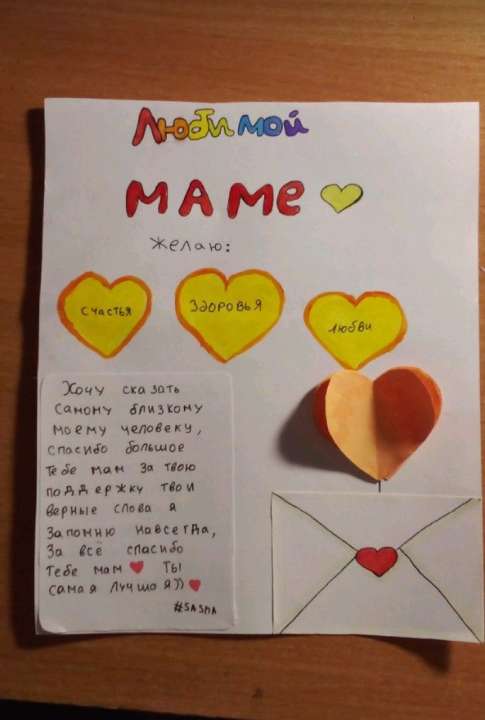 Любимой
маме
Желаю:
Счастья
Здоровья
Любви
Хочу сказать
Самому близкому
моему человеку,
спасибо большое
тебе мам за твою
поддержку твои
верные слова я
Запомню навсегда,
За всё спасибо
Тебе мам ❤ Ты
самая лучшая)) ❤
#SASHA